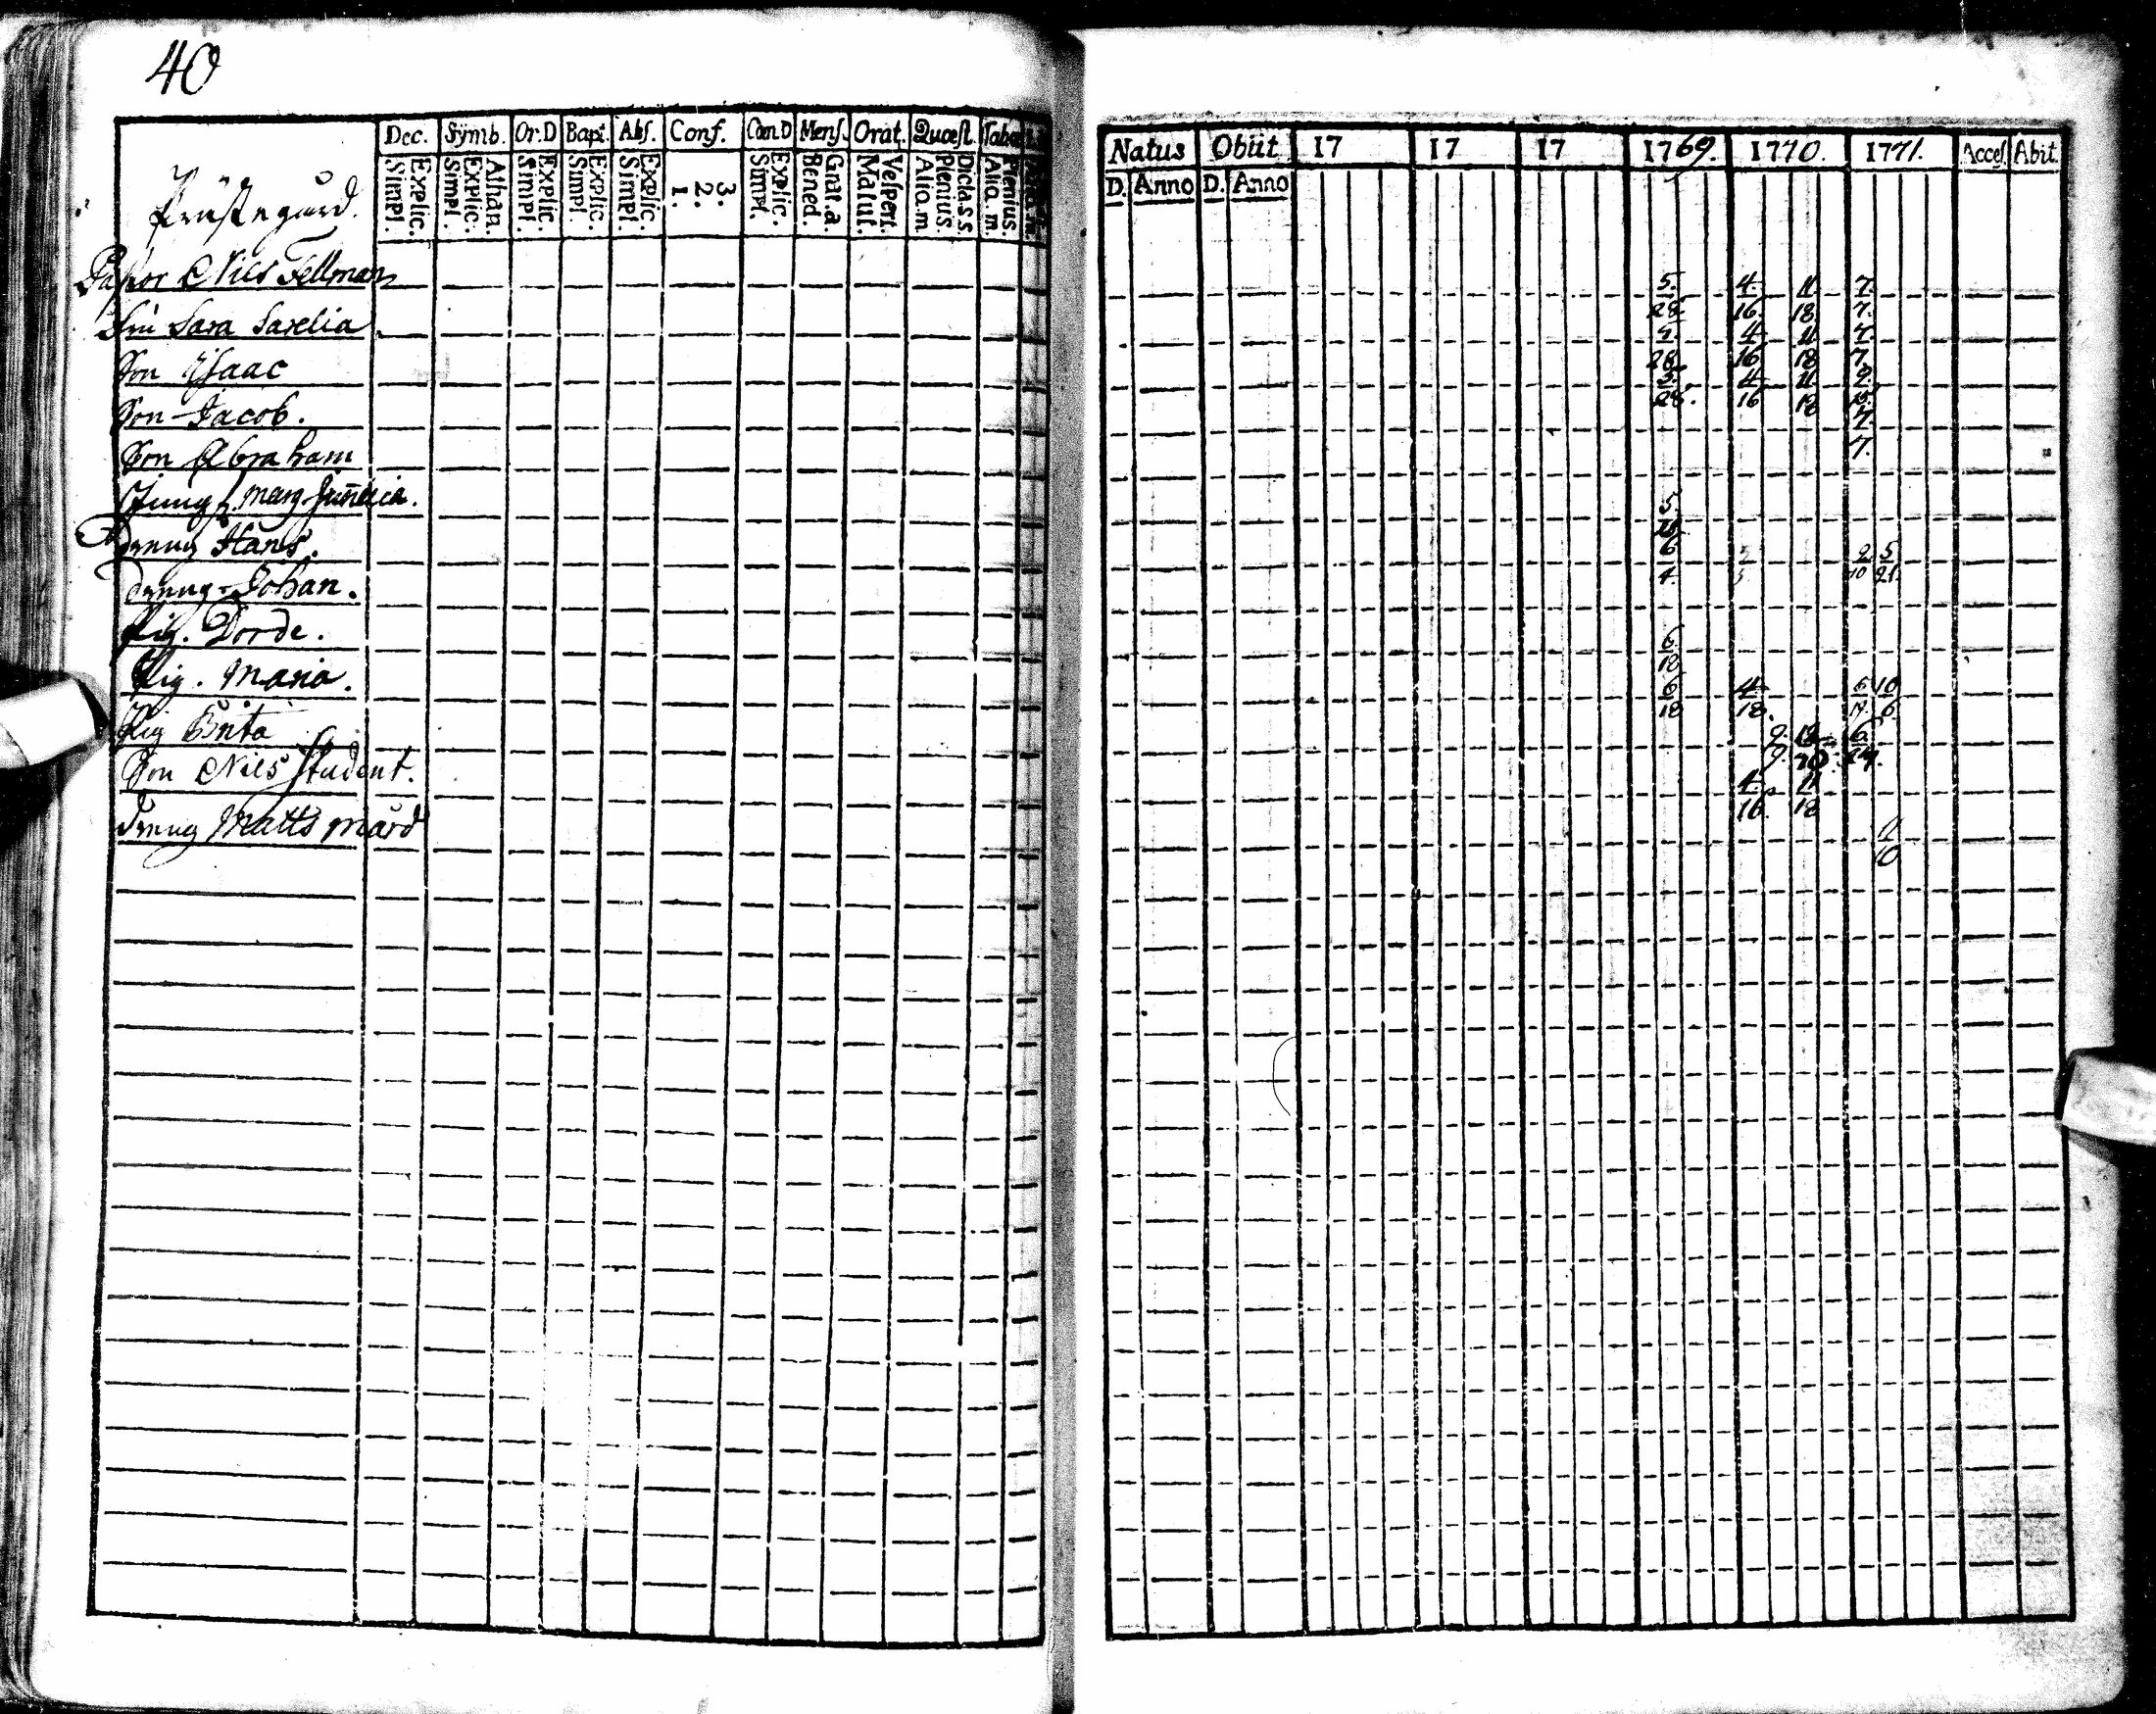 40
Dec. Symb. Or.D Bapt. Abs. Conf. Cœn.D Mens. Orat. Quæst. Tabœ
Simpl. Explic. Simpl. Explic. Athan. Simpl. Explic. Simpl. Explic. Simpl. Explic. 1. 2. 3. Simpl. Explic. Bened. Grat. a. Matut. Vespert. Alio. m Plenius. Dicta. s. s. Alio. m. Plenius.
Prästegård.
Pastor Nils Fellman
Fru Sara Sarelia
Son Isaac
Son Jacob.
Son Abraham
Marg.
Dräng Hans.
Dräng Johan.
Pig. Dorde.
Pig. Maria.
Pig Brita
Son Nils Student.
Dräng Matts mård
Natus Obiit 17 17 17 1769. 1770. 1771. Acces. Abit.
D. Anno D. Anno
5. 4. 11 7.
28. 16. 18 7.
5. 4 11 7.
28 16 18 7
5. 4 11 2.
28. 16 18
7.
7.
5.
6 2 5
4. 10 21.
6
18
6 4 6 10
18 18. 6
9. 12 6
9. 10.
4. 11
16. 18
11
10